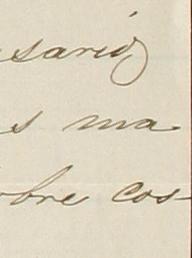 sario
s ma
obre cos-